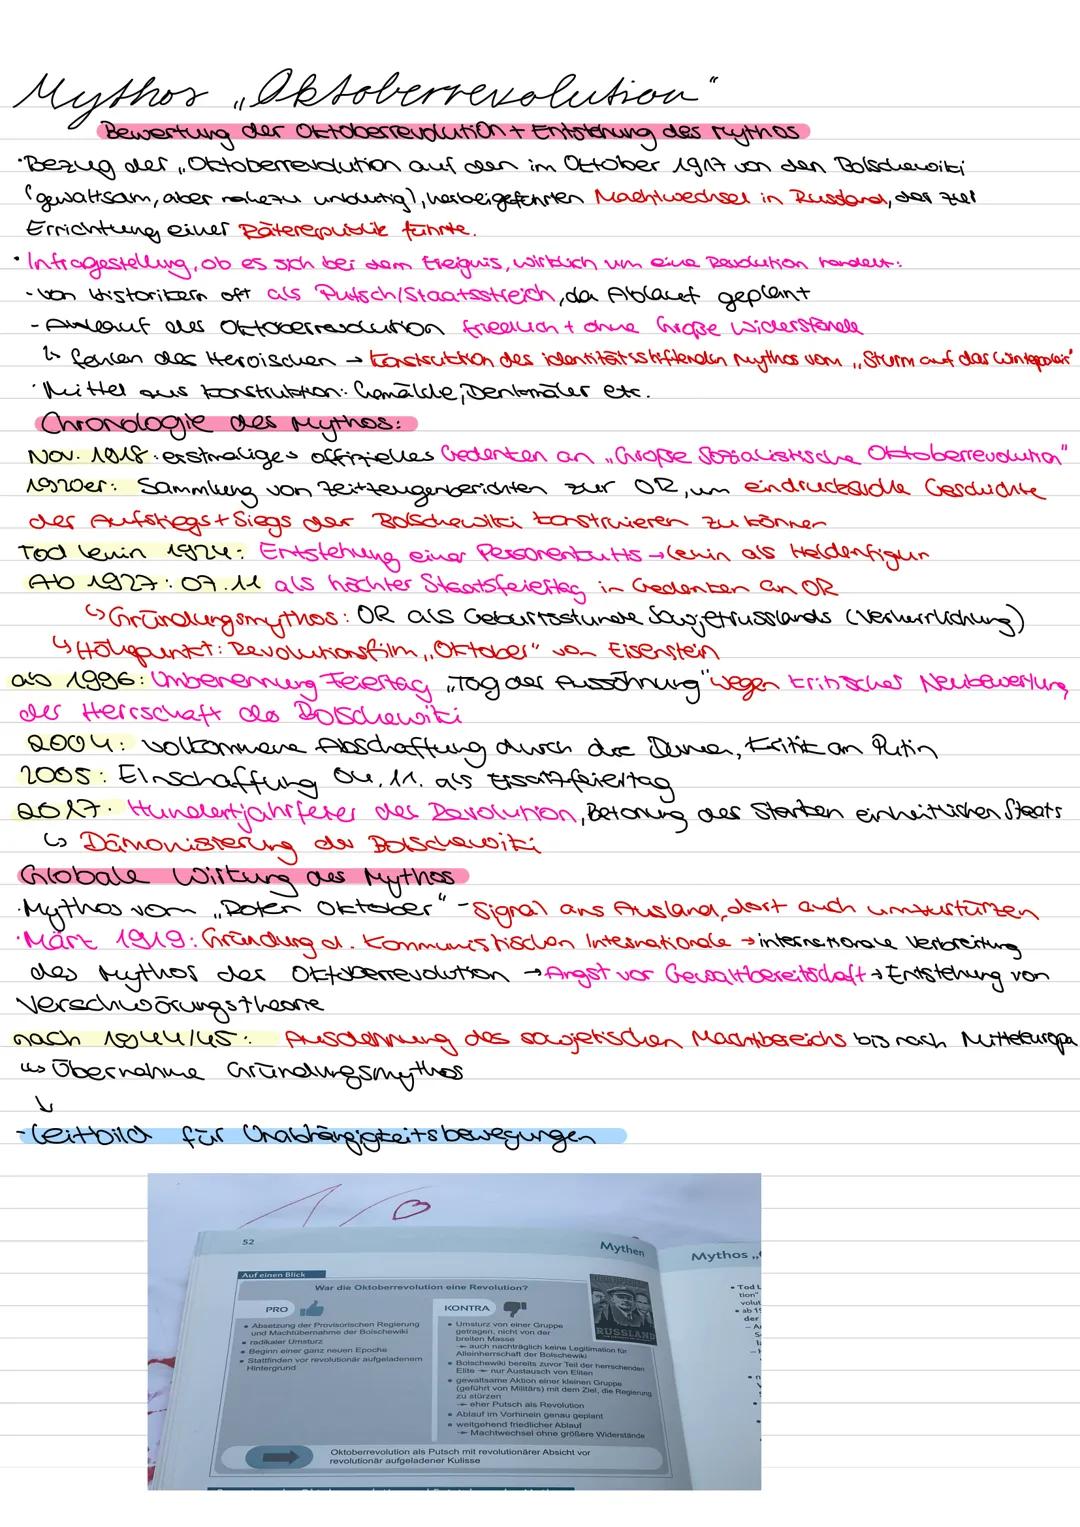 Mythos „Oktoberrevolution"
Bewertung der Oktoberrevolution + Entstehung des Mythos
·Bezug der „Oktoberrevolution auf den im Oktober 1917 von den Bolschewiki
(gewaltsam, aber nahezu unblutig), herbeigeführten Machtwechsel in Russland, der zur
Errichtung einer Räterepublik führte.
· Infragestellung, ob es sich bei dem Ereignis, wirklich um eine Revolution handelt:
- von Historikern oft als Putsch/Staatsstreich, da Ablauf geplant
- Ablauf der Oktoberrevolution friedlich + ohne Große Widerstände
↳ fehlen des Heroischen → Konstruktion des identitätsstiftenden Mythos vom „Sturm auf das Winterpalais"
· Mittel zur Konstruktion: Gemälde, Denkmäler etc.
Chronologie des Mythos:
Nov. 1918: erstmaliges offizielles Gedenken an „Große Sozialistische Oktoberrevolution"
1920er: Sammlung von Zeitzeugenberichten zur OR, um eindrucksvolle Geschichte
des Aufstiegs + Siegs der Bolschewiki konstruieren zu können
Tod Lenin 1924: Entstehung einer Personenkults → Lenin als Heldenfigur
Ab 1927: 07.11 als höchter Staatsfeiertag in Gedenken an OR
↳ Gründungsmythos: OR als Geburtsstunde Sowjetrusslands (Verherrlichung)
↳ Höhepunkt: Revolutionsfilm „Oktober" von Eisenstein
ab 1996: Umbenennung Feiertag „Tag der Aussöhnung" wegen kritischer Neubewertung
der Herrschaft der Bolschewiki
2004: vollkommene Abschaffung durch die Duma, Kritik an Putin
2005: Einschaffung 04.11. als Ersatzfeiertag
2017: Hundertjahrfeier der Revolution, Betonung des starken einheitlichen Staats
↳ Dämonisierung der Bolschewiki
Globale Wirkung des Mythos
·Mythos vom „Roten Oktober" - Signal ans Ausland, dort auch umzustürzen
·März 1919: Gründung d. Kommunistischen Internationale → internationale Verbreitung
des Mythos der Oktoberrevolution → Angst vor Gewaltbereitschaft → Entstehung von
Verschwörungstheorie
nach 1944/45: Ausdehnung des sowjetischen Machtbereichs bis nach Mitteleuropa
↳ Übernahme Gründungsmythos
↓
- Leitbild für Unabhängigkeitsbewegungen
52
Mythen
Mythos „
Auf einen Blick
War die Oktoberrevolution eine Revolution?
PRO
• Absetzung der Provisorischen Regierung
und Machtübernahme der Bolschewiki
• radikaler Umsturz
• Beginn einer ganz neuen Epoche
• Stattfinden vor revolutionär aufgeladenem
Hintergrund
KONTRA
• Umsturz von einer Gruppe
getragen, nicht von der
breiten Masse
→ auch nachträglich keine Legitimation für
Alleinherrschaft der Bolschewiki
• Bolschewiki bereits zuvor Teil der herrschenden
Elite → nur Austausch von Eliten
• gewaltsame Aktion einer kleinen Gruppe
(geführt von Militärs) mit dem Ziel, die Regierung
zu stürzen
→ eher Putsch als Revolution
• Ablauf im Vorhinein genau geplant
• weitgehend friedlicher Ablauf
→ Machtwechsel ohne größere Widerstände
RUSSLAND
Oktoberrevolution als Putsch mit revolutionärer Absicht vor
revolutionär aufgeladener Kulisse